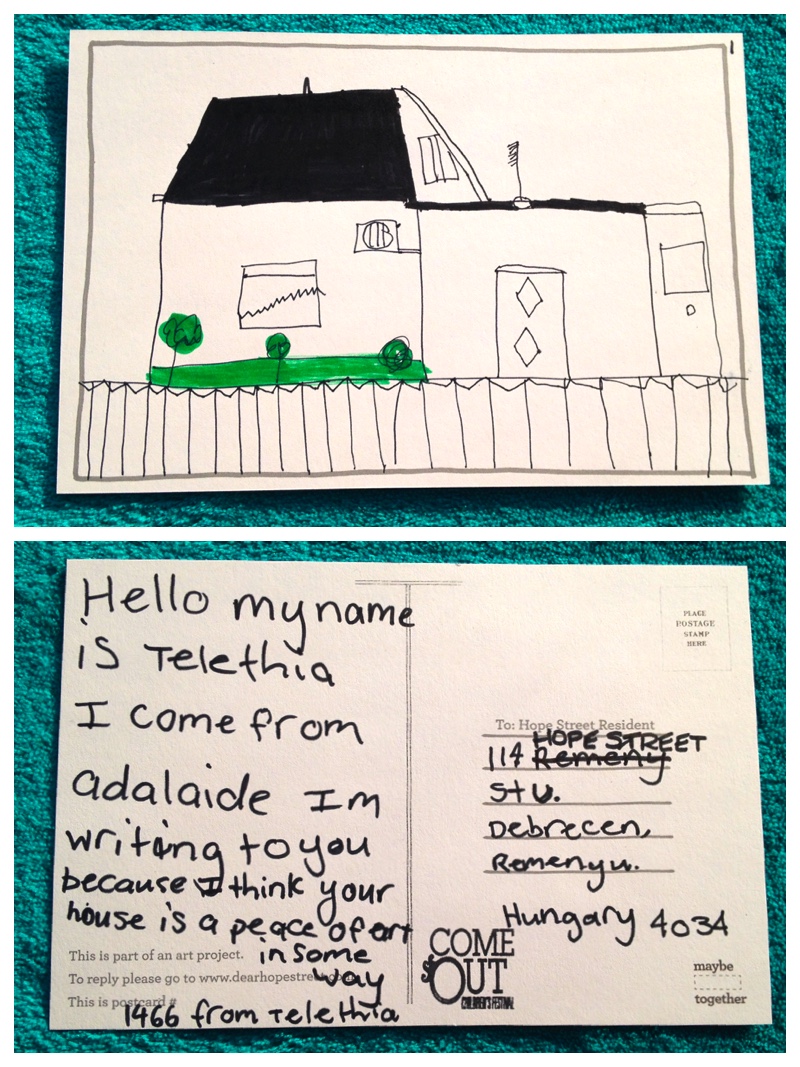 Hello my name
is Telethia
I come from
adalaide Im
writing to you
because I think your
house is a peace of art
in some
way
This is part of an art project.
To reply please go to www.dearhopestreet.com
This is postcard #
1466 from Telethia
PLACE
POSTAGE
STAMP
HERE
To: Hope Street Resident
HOPE STREET
114 Remeny
st u.
Debrecen,
Remenyu.
Hungary 4034
COME
OUT
CHILDREN'S FESTIVAL
maybe
together